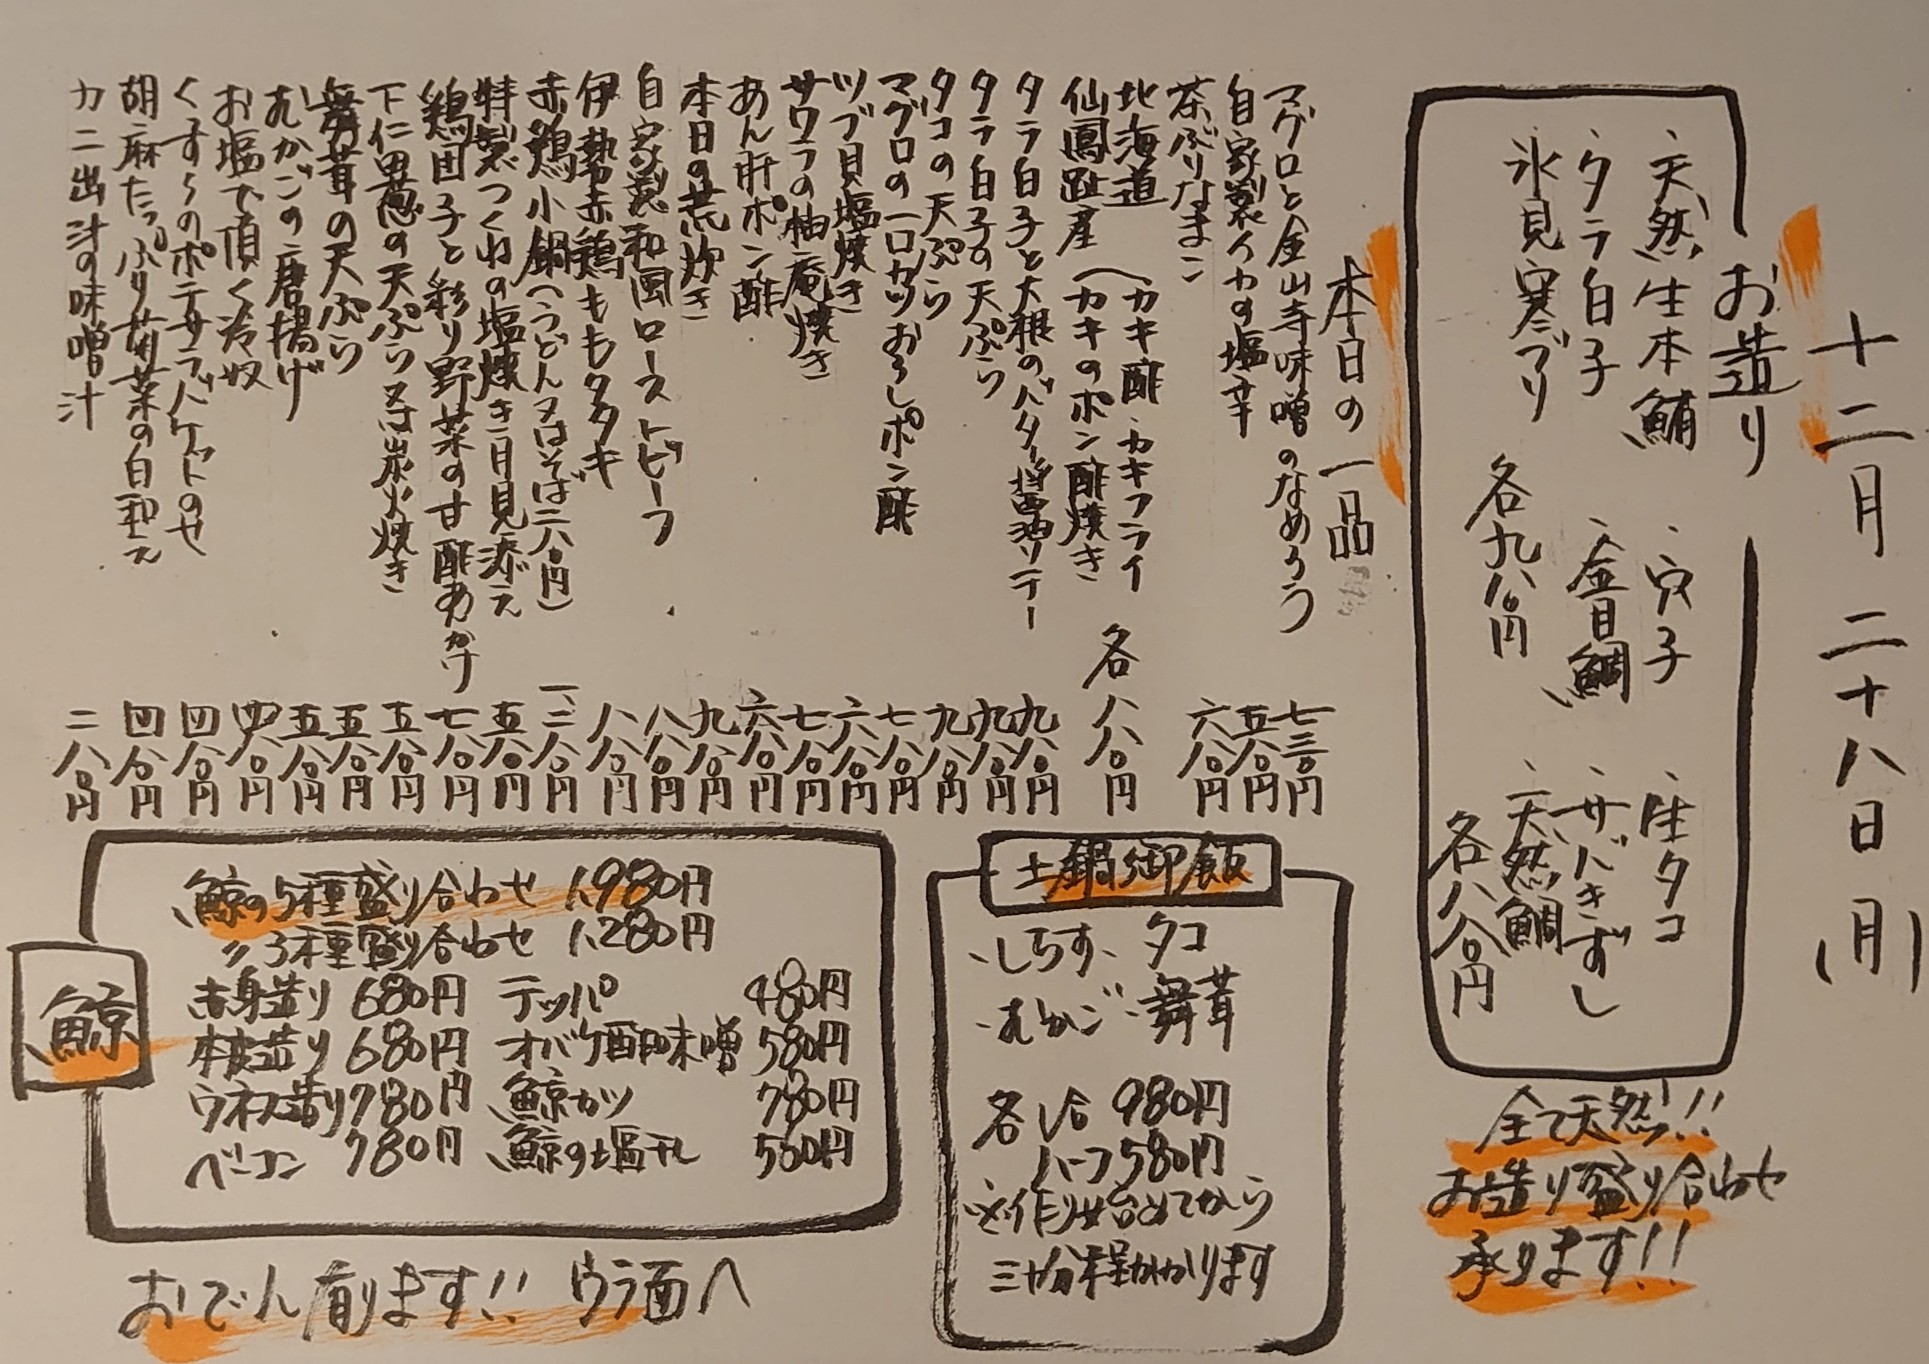 十二月二十八日(月)
お造り
・天然生本鮪
・タラ白子
・氷見寒ブリ
各九八〇円
・穴子
・金目鯛
・生タコ
・サバきずし
・天然鯛
各八八〇円
全て天然!!
お造り盛り合わせ
承ります!!
本日の一品
マグロと金山寺味噌のなめろう 七三〇円
自家製イカの塩辛 五八〇円
茶ぶりなまこ 六八〇円
北海道
仙鳳趾産
(カキ酢・カキフライ
(カキのポン酢焼き
各八八〇円
タラ白子と大根のバター醤油ソテー 九八〇円
タラ白子の天ぷら 九八〇円
タコの天ぷら 九八〇円
マグロの一口カツおろしポン酢 七八〇円
ツブ貝塩焼き 六八〇円
サワラの柚庵焼き 七八〇円
あん肝ポン酢 六八〇円
本日の荒炊き 九八〇円
自家製和風ローストビーフ 八八〇円
伊勢赤鶏ももタタキ 八八〇円
赤鶏小鍋(うどん又はそば二八〇円) 一、二八〇円
特製つくねの塩焼き月見添え 五八〇円
鶏団子と彩り野菜の甘酢あんかけ 七八〇円
下仁田葱の天ぷら又は炭火焼き 五八〇円
舞茸の天ぷら 五八〇円
むかごの唐揚げ 五八〇円
お塩で頂く冷奴 四八〇円
くずし のポテサラバケットのせ 四八〇円
胡麻たっぷり菊菜の白和え 四八〇円
カニ出汁の味噌汁 二八〇円
土鍋御飯
・しらす・タコ
・むかご・舞茸
各1合 980円
ハーフ580円
※作り始めてから
三十分程かかります
鯨
鯨の5種盛り合わせ 1,980円
〃3種盛り合わせ 1,280円
赤身造り 680円 テッパ 480円
本皮造り 680円 オバケ酢味噌 580円
ウネス造り 780円 鯨カツ 780円
ベーコン 780円 鯨の塩タレ 580円
おでん有ります!! ウラ面へ